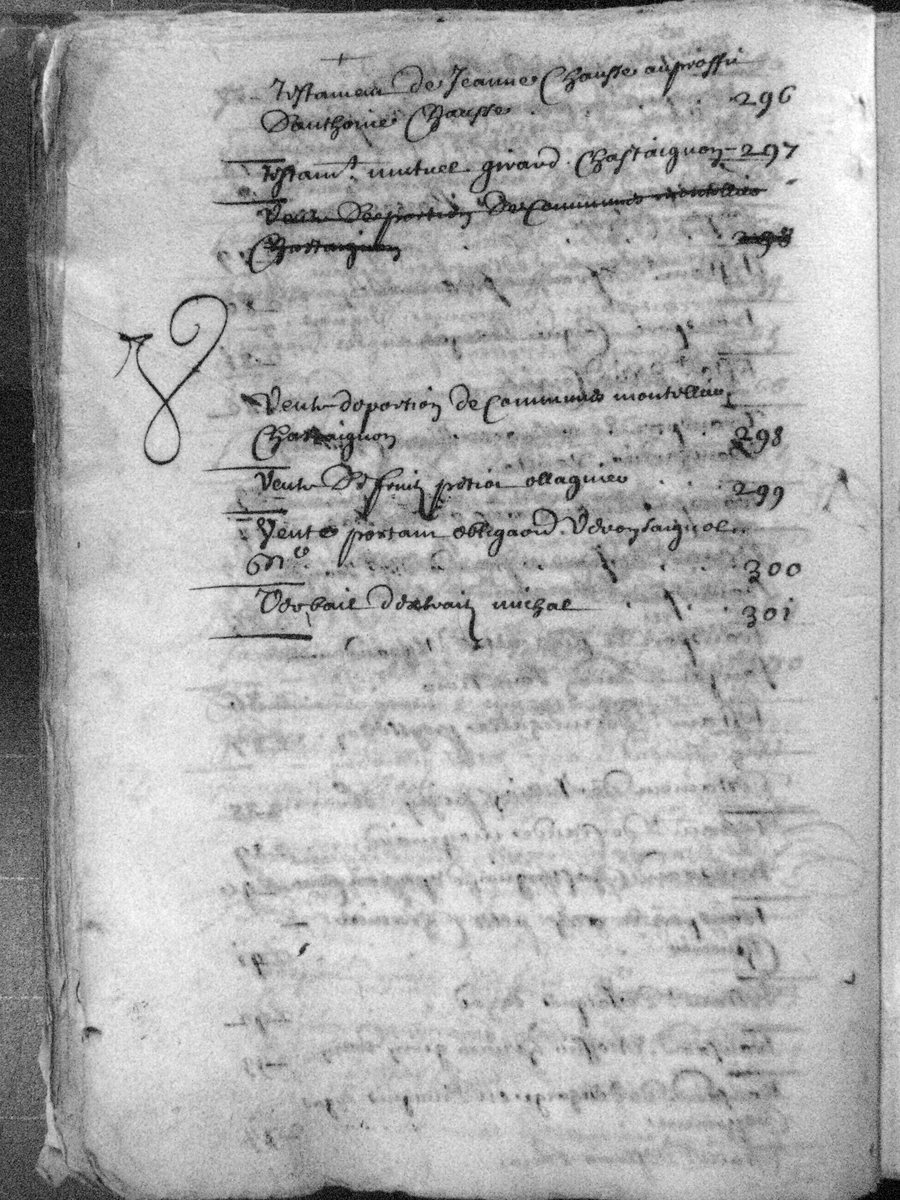 Testament de Jeanne Chausse au proffit
D'anthoine Chausse . . . . 296
Testamt. mutuel girard Chastaignon 297
Vente de portion de communes montellier
Chastaignon . . . . 298
V
Vente de portion de communes montellier
Chastaignon . . . . 298
Vente de fruit ollagnier . . 299
Vente portant obligaōn
. . . . 300
Verbail d'extrait michal . . . 301